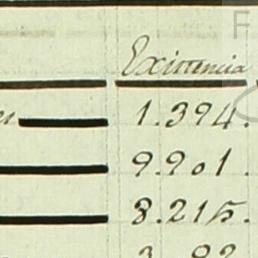 Existencia
1.394.
9.901.
8.215.